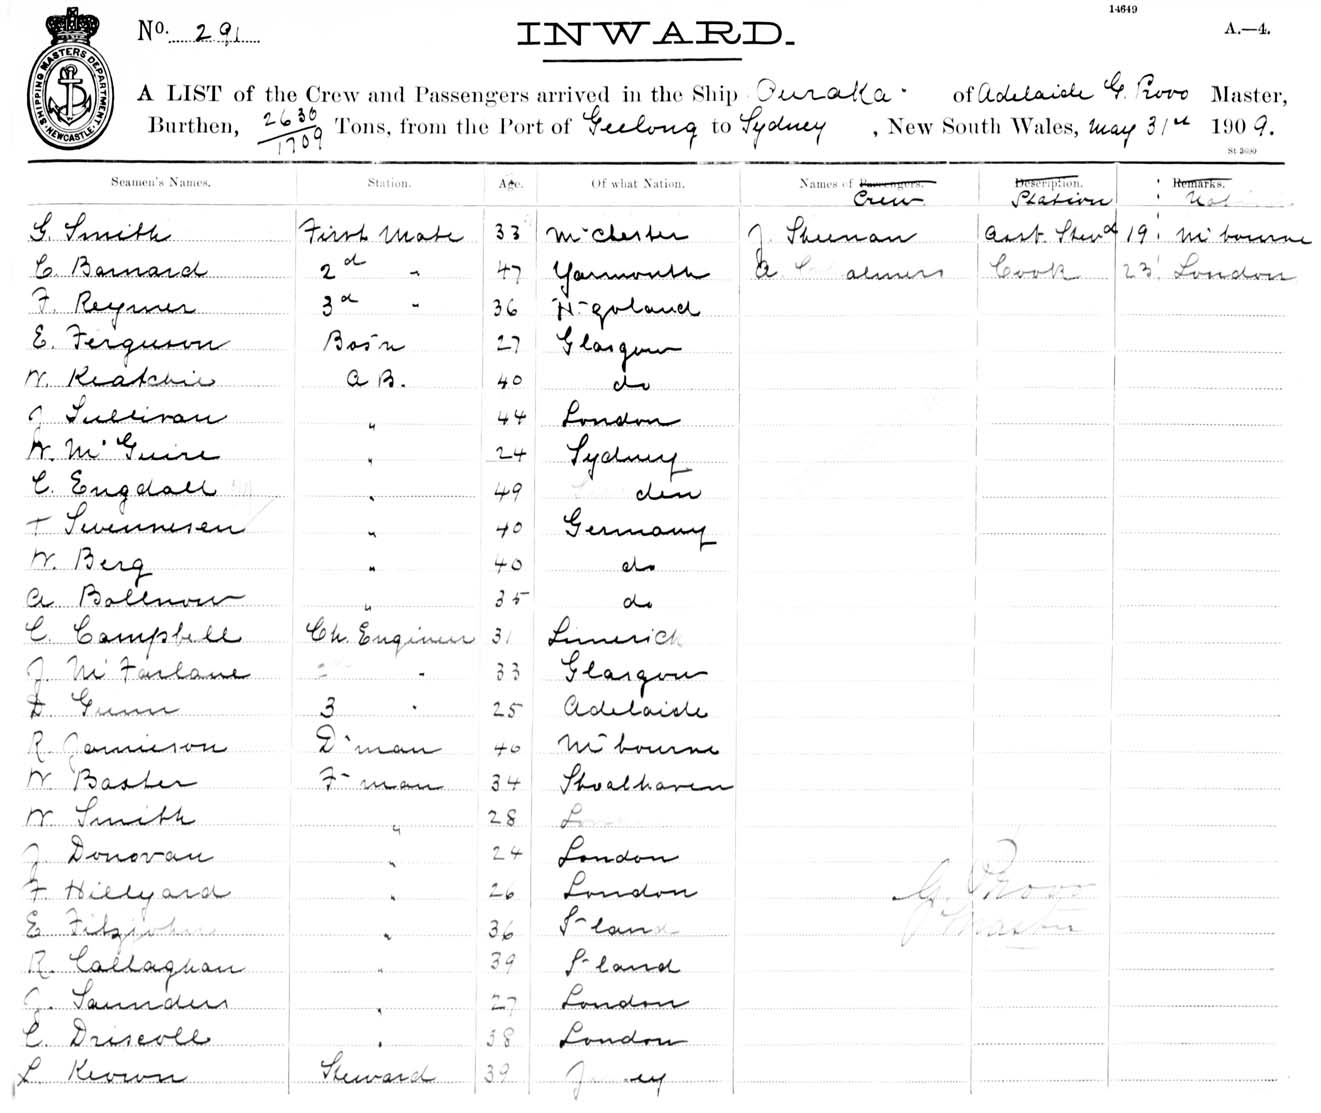 14649
No. 291
INWARD.
A.—4.
SHIPPING MASTERS DEPARTMENT NEWCASTLE
A LIST of the Crew and Passengers arrived in the Ship Ouraka of Adelaide G. Provo Master,
Burthen, 2630/1709 Tons, from the Port of Geelong to Sydney, New South Wales, May 31st 1909.
St 3090
Seamen's Names. Station. Age. Of what Nation. Names of Passengers. Description. Remarks.
Crew Station
G. Smith First Mate 33 M'chester J. Sheenan Asst. Stewd 19 M'bourne
C. Barnard 2d " 47 Yarmouth A. Cook 23 London
F. Reymer 3d " 36 H'goland
E. Ferguson Bos'n 27 Glasgow
W. Keatchie A B. 40 do
J. Sullivan " 44 London
W. Mc Guire " 24 Sydney
C. Engdall " 49 den
T Swennesen " 40 Germany
W. Berg " 40 do
A Bollnow " 35 do
C. Campbell Ch. Engineer 31 Limerick
J. McFarlane " 33 Glasgow
D. Gunn 3 " 25 Adelaide
R. Jamieson D'man 46 M'bourne
W Baxter F'man 34 Shoalhaven
W Smith " 28
J. Donovan " 24 London
F. Hillyard " 26 London
E Fitzjohn " 36 S'land
R. Callaghan " 39 S'land
J. Saunders " 27 London
C. Driscoll " 38 London
L Keown Steward 39
G. Provo
Master